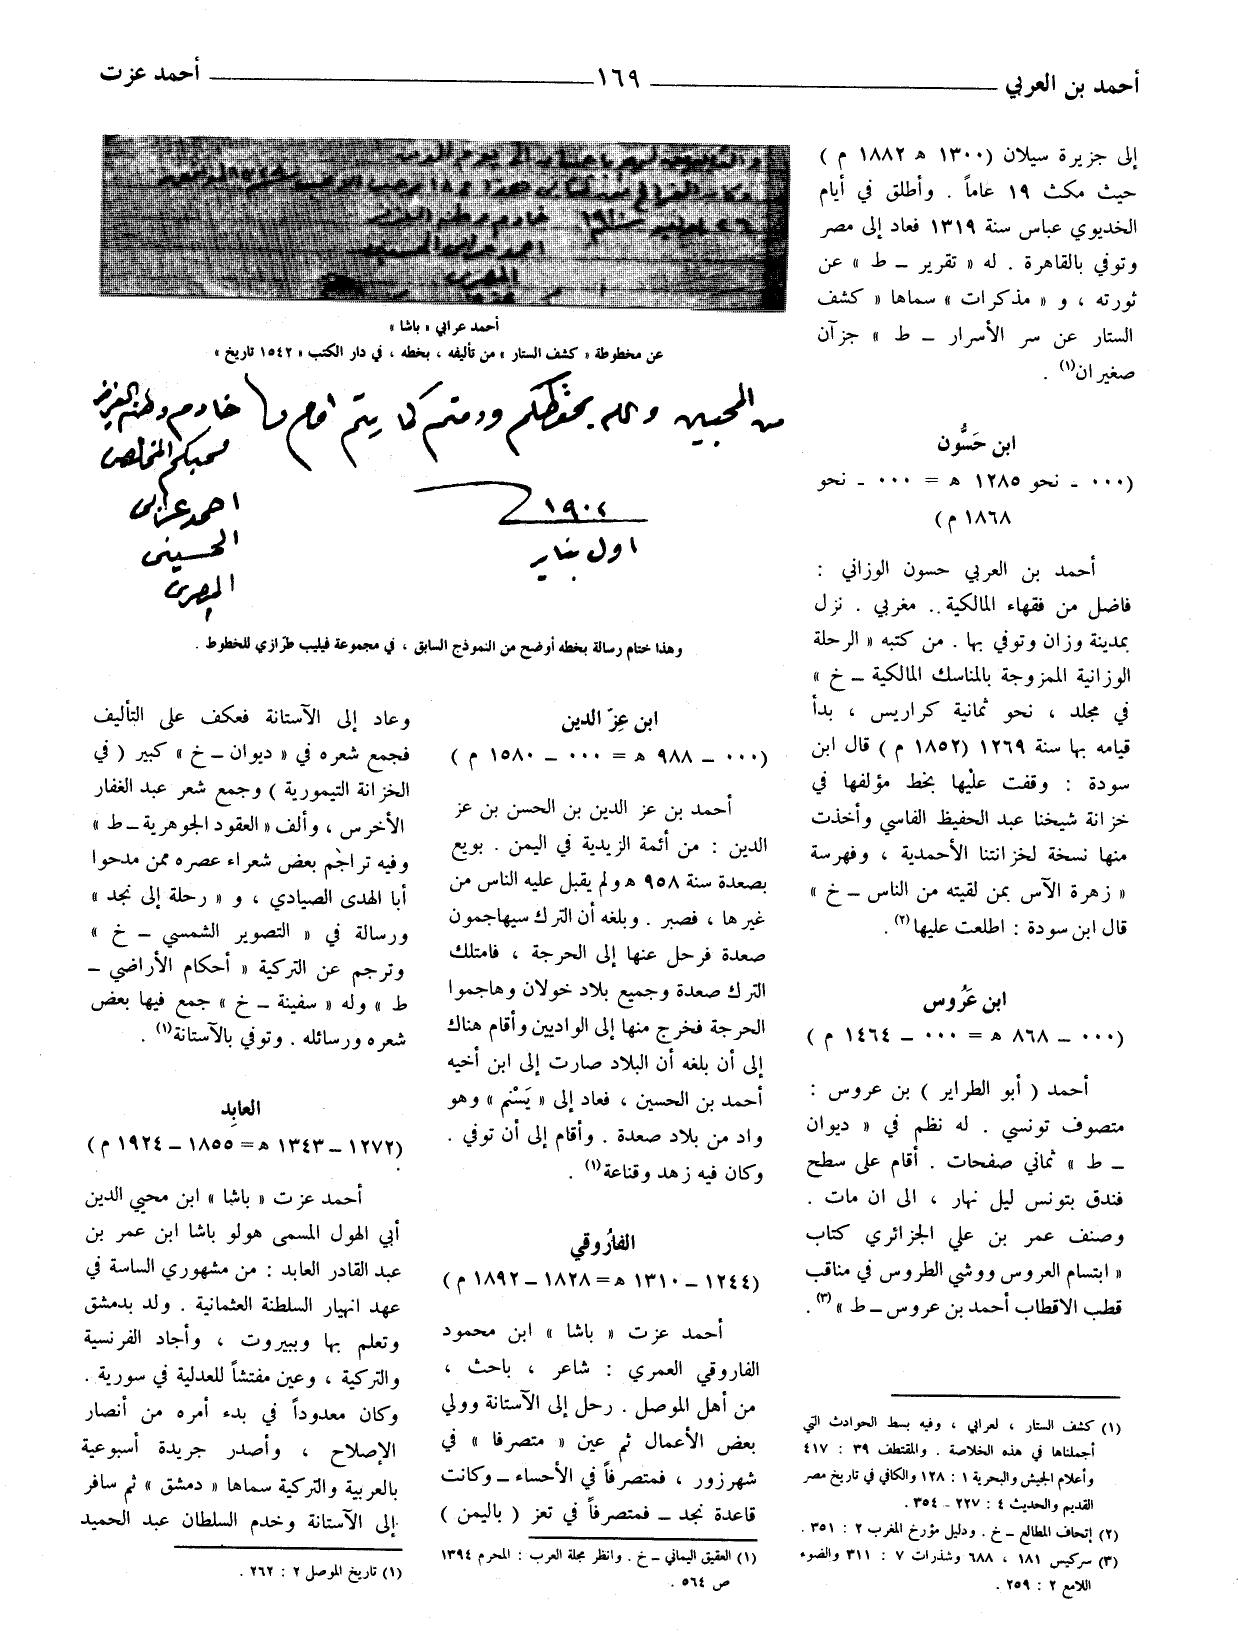 أحمد بن العربي ١٦٩ أحمد عزت
إلى جزيرة سيلان (١٣٠٠ هـ ١٨٨٢ م )
حيث مكث ١٩ عاماً . وأطلق في أيام
الخديوي عباس سنة ١٣١٩ فعاد إلى مصر
وتوفي بالقاهرة . له « تقرير ــ ط » عن
ثورته ، و « مذكرات » سماها « كشف
الستار عن سر الأسرار ــ ط » جزآن
صغيران(١) .
ابن حَسُّون
(٠٠٠ ـ نحو ١٢٨٥ هـ = ٠٠٠ ـ نحو
١٨٦٨ م)
أحمد بن العربي حسون الوزاني :
فاضل من فقهاء المالكية . مغربي . نزل
بمدينة وزان وتوفي بها . من كتبه « الرحلة
الوزانية الممزوجة بالمناسك المالكية ــ خ »
في مجلد ، نحو ثمانية كراريس ، بدأ
قيامه بها سنة ١٢٦٩ (١٨٥٢ م ) قال ابن
سودة : وقفت عليها بخط مؤلفها في
خزانة شيخنا عبد الحفيظ الفاسي وأخذت
منها نسخة لخزانتنا الأحمدية ، وفهرسة
« زهرة الآس بمن لقيته من الناس ــ خ »
قال ابن سودة : اطلعت عليها(٢) .
ابن عَرُوس
(٠٠٠ ــ ٨٦٨ هـ = ٠٠٠ ــ ١٤٦٤ م )
أحمد ( أبو الطراير ) بن عروس :
متصوف تونسي . له نظم في « ديوان
ــ ط » ثماني صفحات . أقام على سطح
فندق بتونس ليل نهار ، الى ان مات .
وصنف عمر بن علي الجزائري كتاب
« ابتسام العروس ووشي الطروس في مناقب
قطب الاقطاب أحمد بن عروس ــ ط » (٣) .
(١) كشف الستار ، لعرابي ، وفيه بسط الحوادث التي
أجملناها في هذه الخلاصة . والمقتطف ٣٩ : ٤١٧
وأعلام الجيش والبحرية ١ : ١٢٨ والكافي في تاريخ مصر
القديم والحديث ٤ : ٢٢٧ ـ ٣٥٤ .
(٢) إتحاف المطالع ــ خ . ودليل مؤرخ المغرب ٢ : ٣٥١ .
(٣) سركيس ١٨١ ، ٦٨٨ وشذرات ٧ : ٣١١ والضوء
اللامع ٢ : ٢٥٩ .
خادم وطنه العزيز
احمد عرابى الحسينى
المصرى
أحمد عرابي « باشا »
عن مخطوطة « كشف الستار » من تأليفه ، بخطه ، في دار الكتب « ١٥٤٢ تاريخ »
من المحبين والله يحفظكم ودمتم كما يتم
خادم وطنه العزيز
محبكم المخلص
احمد عرابى
الحسينى
المصرى
١٩٠٢
اول يناير
وهذا ختام رسالة بخطه أوضح من النموذج السابق ، في مجموعة فيليب طرّازي للخطوط .
ابن عِزّ الدين
(٠٠٠ ــ ٩٨٨ هـ = ٠٠٠ ــ ١٥٨٠ م )
أحمد بن عز الدين بن الحسن بن عز
الدين : من أئمة الزيدية في اليمن . بويع
بصعدة سنة ٩٥٨ هـ ولم يقبل عليه الناس من
غيرها ، فصبر . وبلغه أن الترك سيهاجمون
صعدة فرحل عنها إلى الحرجة ، فامتلك
الترك صعدة وجميع بلاد خولان وهاجموا
الحرجة فخرج منها إلى الواديين وأقام هناك
إلى أن بلغه أن البلاد صارت إلى ابن أخيه
أحمد بن الحسين ، فعاد إلى « يَسْنم » وهو
واد من بلاد صعدة . وأقام إلى أن توفي .
وكان فيه زهد وقناعة(١) .
الفارُوقي
(١٢٤٤ ــ ١٣١٠ هـ = ١٨٢٨ ــ ١٨٩٢ م )
أحمد عزت « باشا » ابن محمود
الفاروقي العمري : شاعر ، باحث ،
من أهل الموصل . رحل إلى الآستانة وولي
بعض الأعمال ثم عين « متصرفا » في
شهرزور ، فمتصرفاً في الأحساء ــ وكانت
قاعدة نجد ــ فمتصرفاً في تعز ( باليمن )
(١) العقيق اليماني ــ خ . وانظر مجلة العرب : المحرم ١٣٩٤
ص ٥٦٤ .
وعاد إلى الآستانة فعكف على التأليف
فجمع شعره في « ديوان ــ خ » كبير ( في
الخزانة التيمورية ) وجمع شعر عبد الغفار
الأخرس ، وألف « العقود الجوهرية ــ ط »
وفيه تراجم بعض شعراء عصره ممن مدحوا
أبا الهدى الصيادي ، و « رحلة إلى نجد »
ورسالة في « التصوير الشمسي ــ خ »
وترجم عن التركية « أحكام الأراضي ــ
ط » وله « سفينة ــ خ » جمع فيها بعض
شعره ورسائله . وتوفي بالآستانة(١) .
العابِد
(١٢٧٢ ــ ١٣٤٣ هـ = ١٨٥٥ ــ ١٩٢٤ م )
أحمد عزت « باشا » ابن محيي الدين
أبي الهول المسمى هولو باشا ابن عمر بن
عبد القادر العابد : من مشهوري الساسة في
عهد انهيار السلطنة العثمانية . ولد بدمشق
وتعلم بها وببيروت ، وأجاد الفرنسية
والتركية ، وعين مفتشاً للعدلية في سورية .
وكان معدوداً في بدء أمره من أنصار
الإصلاح ، وأصدر جريدة أسبوعية
بالعربية والتركية سماها « دمشق » ثم سافر
إلى الآستانة وخدم السلطان عبد الحميد
(١) تاريخ الموصل ٢ : ٢٦٢ .